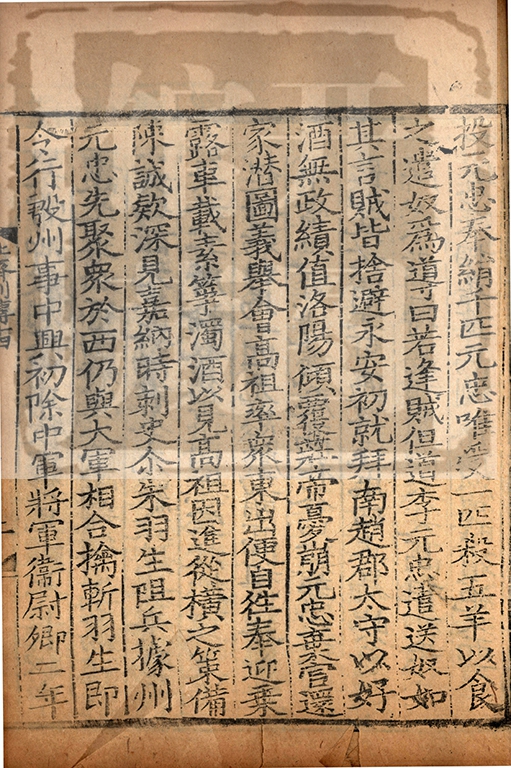 投元忠奉絹千匹元忠唯受一匹殺五羊以食
之遣奴為導曰若逢賊但道李元忠遣送奴如
其言賊皆捨避永安初就拜南趙郡太守以好
酒無政績值洛陽傾覆莊帝憂崩元忠棄官還
家潛圖義舉會高祖率衆東出便自往奉迎乗
露車載素箏濁酒以見高祖因進從橫之策備
陳誠欵深見嘉納時刺史尒朱羽生阻兵據州
元忠先聚衆於西仍與大軍相合擒斬羽生即
令行殷州事中興初除中軍將軍衛尉卿二年